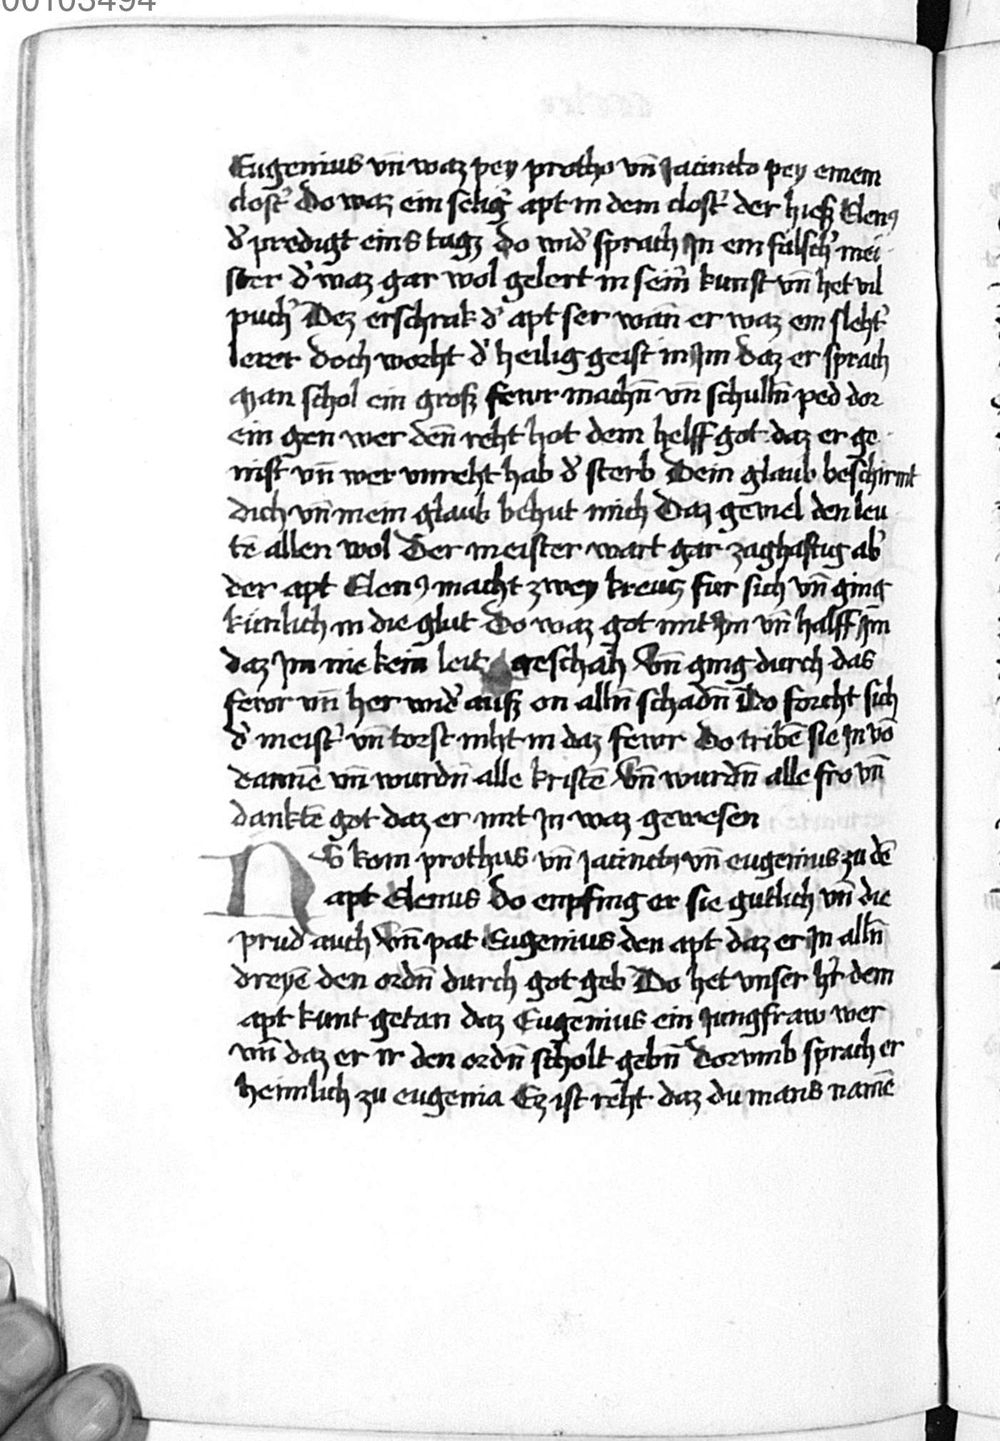 00103494
Eugenius vn̄ waz pey protho vn̄ Jacincto pey einem
clost' Do waz ein selig' apt in dem clost' der hiesz Elenꝰ
d' predigt eins tagz do wid' sprach Jn ein falsch' mei
ster d' waz gar wol gelert in seim̄ kunst vn̄ het vil
puch' Dez erschrak d' apt ser wān er waz ein sleht'
lerer doch worht d' heilig geist in Jm daz er sprach
Man schol ein grosz fewr machn̄ vn̄ schulln̄ ped dor
ein gen wer den̄ reht hot dem helff got daz er ge
nist vn̄ wer vnreht hab d' sterb Dein glaub beschirmt
dich vn̄ mein glaub behut mich Daz geviel den leu
tē allen wol Der meister wart gar zaghaftig ab'
der apt Elenꝰ macht zwey kreutz fur sich vn̄ ging
kunlich in die glut Do waz got mit Jm vn̄ halff Jm
daz Jm nie kein leit geschah Vn̄ ging durch das
fewr vn̄ her wid' ausz on alln̄ schadn̄ Do forcht sich
d' meist' vn̄ torst niht in daz fewr Do tribē sie Jn vō
dannē vn̄ wurdn̄ alle kristē Vn̄ wurdn̄ alle fro vn̄
danktē got daz er mit Jn waz gewesen
Do kom prothus vn̄ Jacinctꝰ vn̄ eugenius zu dē
apt Elenus do enpfing er sie gutlich vn̄ die
prud auch Vn̄ pat Eugenius den apt daz er Jn alln̄
dreyē den ordn̄ durch got geb Do het vnser h'r dem
apt kunt getan daz Eugenius ein Jungfraw wer
vn̄ daz er ir den ordn̄ scholt gebn̄ Dorvmb sprach er
heimlich zu eugenia Ez ist reht daz du mans namē